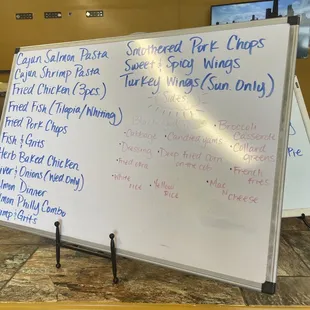 Cajun Salmon Pasta
Cajun Shrimp Pasta
Fried Chicken (3pcs)
Fried Fish (Tilapia/Whiting)
Fried Pork Chops
Fish & Grits
Herb Baked Chicken
& Onions (Wed. Only)
Dinner
Philly Combo
& Grits
Smothered Pork Chops
Sweet & Spicy Wings
Turkey Wings (Sun. Only)
Sides
• Cabbage • Candied yams • Broccoli
• Collard greens
• Dressing • Deep fried corn on the cob
• French fries
• White rice • Yellow Rice • Mac to CHEESE
Pie